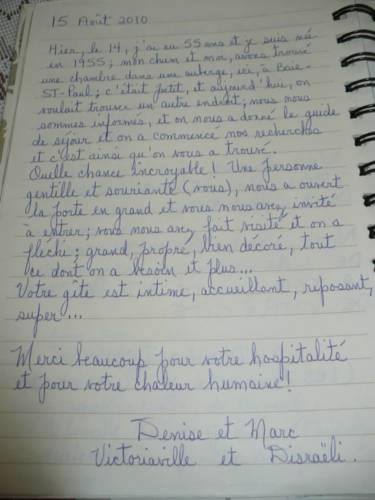 15 Août 2010
Hier, le 14, j'ai eu 55 ans et je suis né
en 1955; mon chum et moi, avons trouvé
une chambre dans une auberge, ici, à Baie-
ST-Paul; c'était petit, et aujourd'hui, on
voulait trouver un autre endroit; nous nous
sommes informés, et on nous a donné le guide
de séjour et on a commencé nos recherches
et c'est ainsi qu'on vous a trouvé.
Quelle chance incroyable! Une personne
gentille et souriante (vous), nous a ouvert
la porte en grand et vous nous avez invité
à entrer; vous nous avez fait visité et on a
fléché; grand, propre, bien décoré, tout
ce dont on a besoin et plus...
Votre gîte est intime, accueillant, reposant,
super...
Merci beaucoup pour votre hospitalité
et pour votre chaleur humaine!
Denise et Marc
Victoriaville et Disraëli.